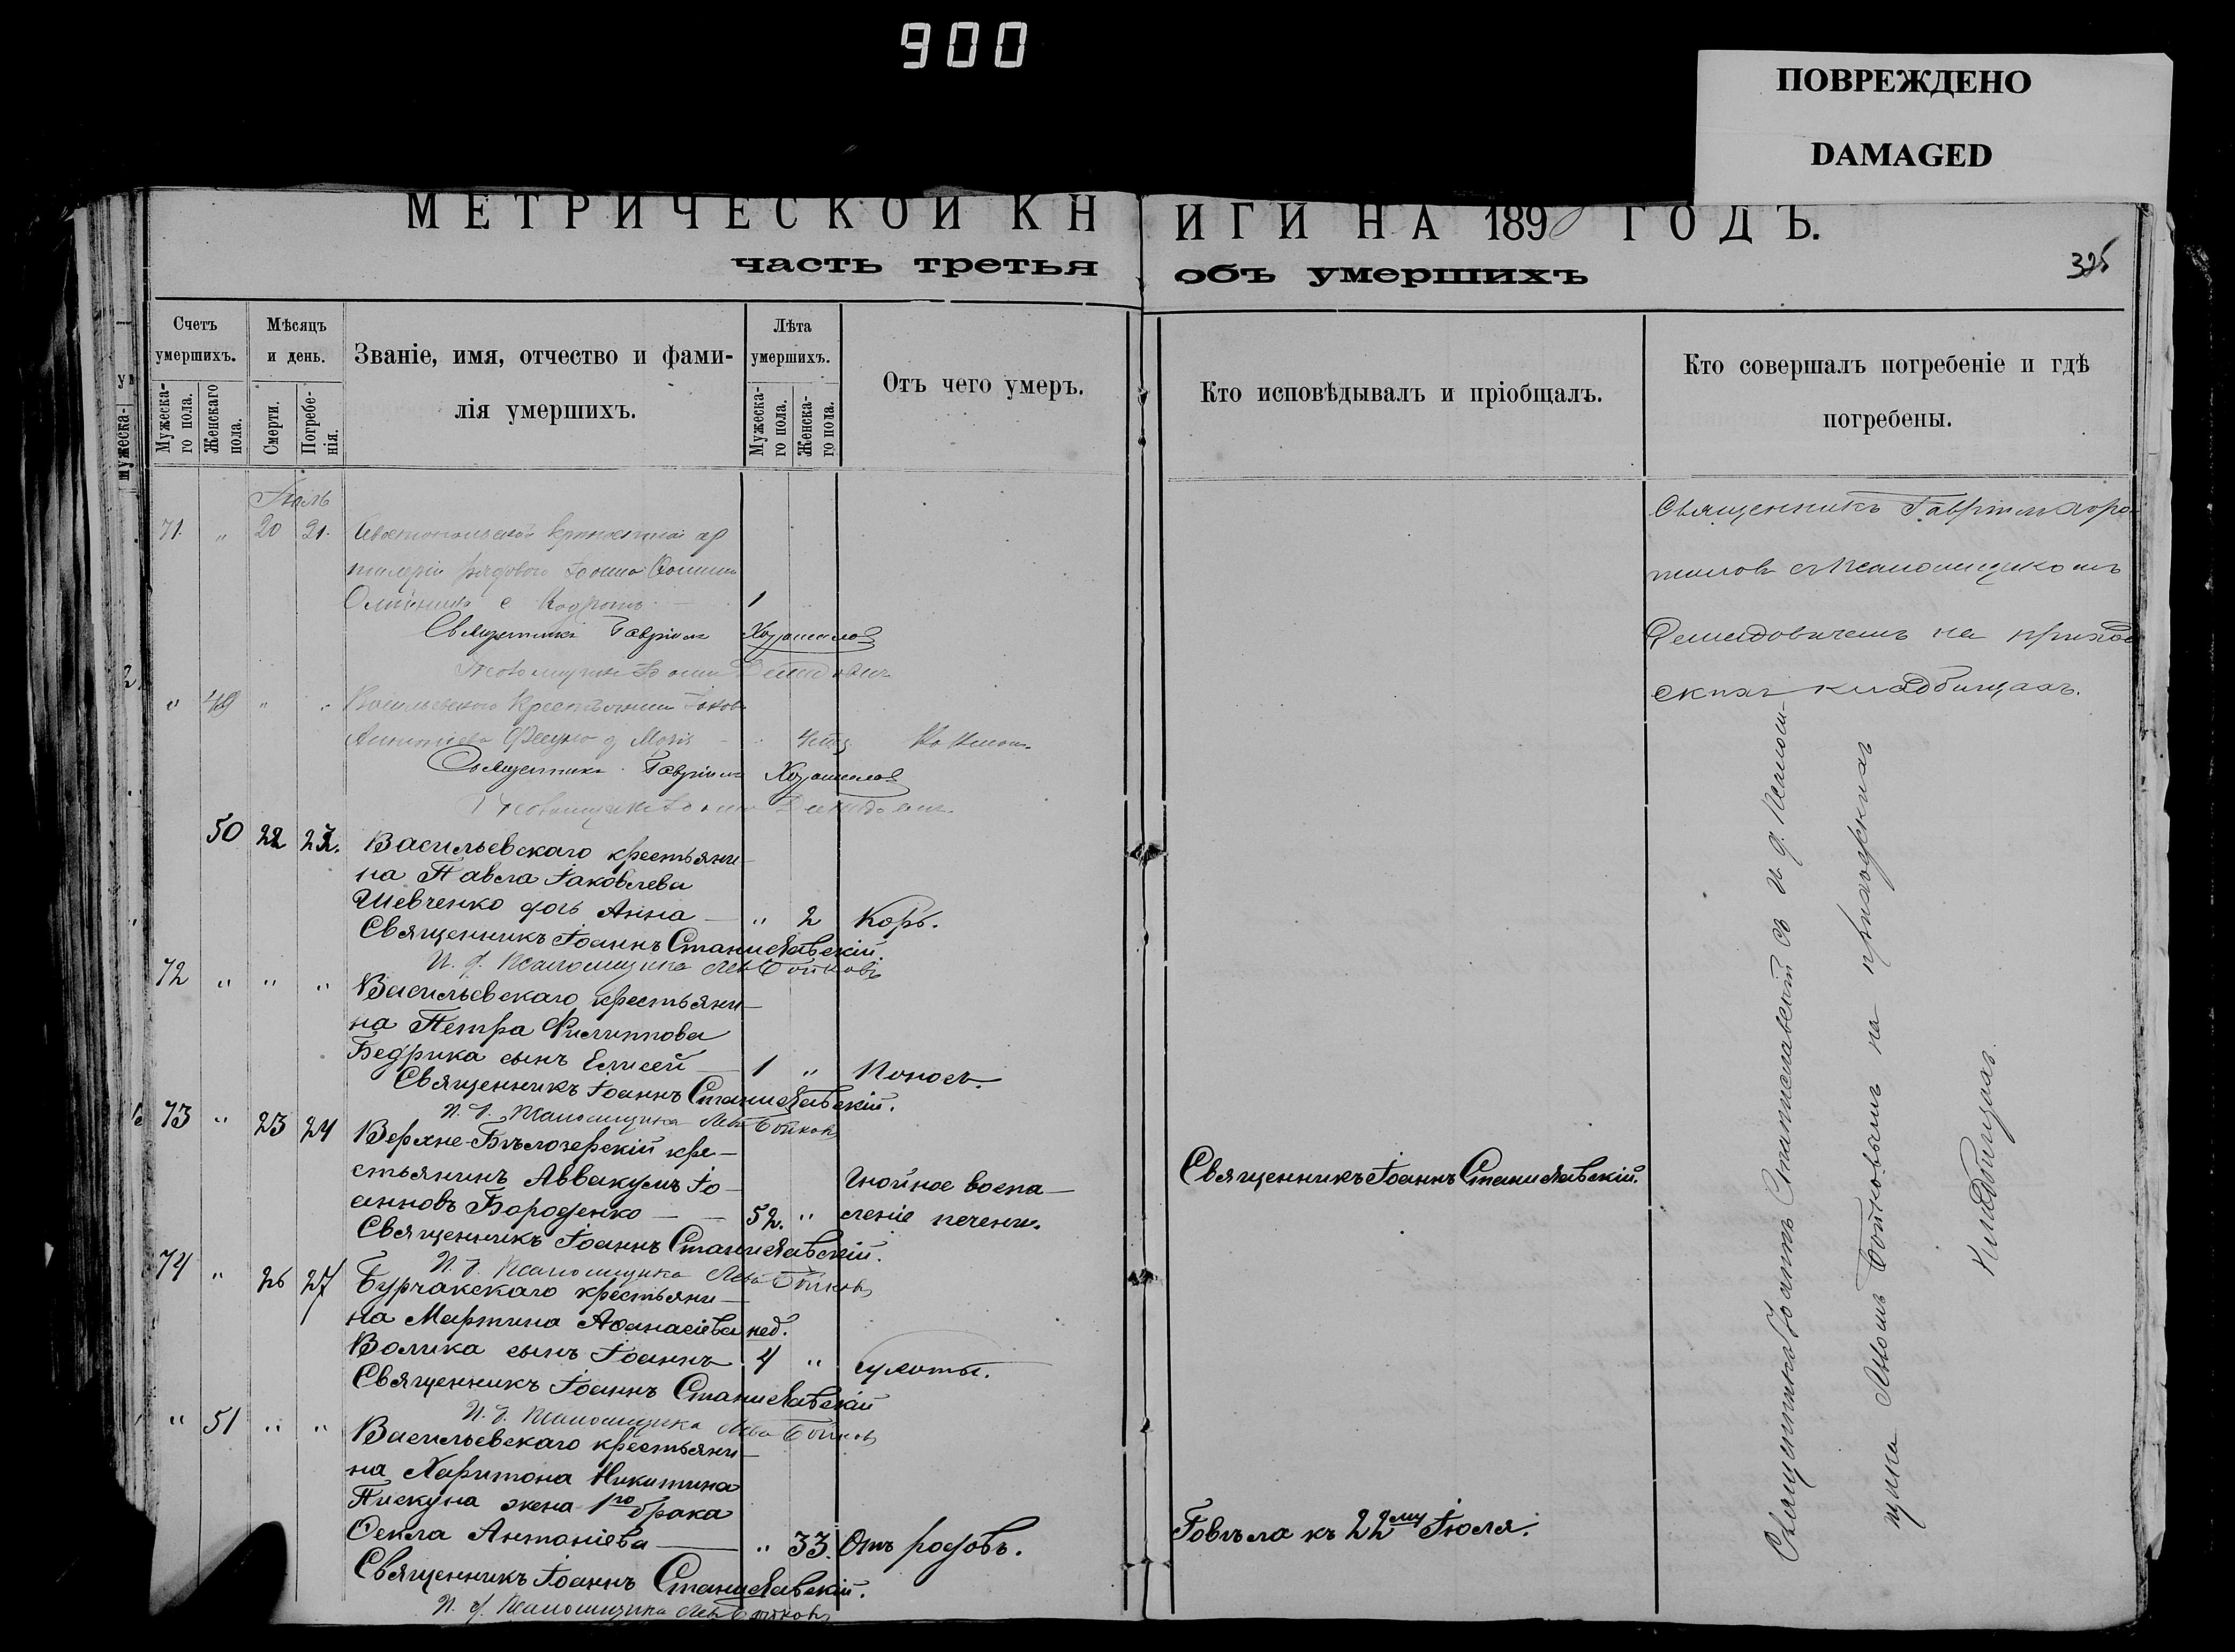 900
ПОВРЕЖДЕНО
DAMAGED
МЕТРИЧЕСКОЙ КНИГИ НА 1890 ГОДЪ.
часть третья объ умершихъ
325
Счетъ умершихъ.
Мужеска-го пола.
Женскаго пола.
Мѣсяцъ и день.
Смерти.
Погребе-нія.
Званіе, имя, отчество и фами-
лія умершихъ.
Лѣта умершихъ.
Мужеска-го пола.
Женска-го пола.
Отъ чего умеръ.
Кто исповѣдывалъ и пріобщалъ.
Кто совершалъ погребеніе и гдѣ
погребены.
Іюль
71. " 20 21.
рядового
1
Священникъ Гавріилъ
" 49 " "
Васильевского крестьянина
Священникъ Гавріилъ
50 22 23. Васильевскаго крестьяни-
на Павла Іаковлева
Шевченко дочь Анна — " 2 Корь.
Священникъ Іоаннъ Станиславскій.
И. д. Псаломщика Левъ Бойковъ
72 " " " Васильевскаго крестьяни-
на Петра Филиппова
Бедрика сынъ Елисей — 1 " Поносъ.
Священникъ Іоаннъ Станиславскій.
И. д. Псаломщика Левъ Бойковъ
73 " 23 24 Верхне-Бѣлозерскій кре-
стьянинъ Аввакумъ Іо- Гнойное воспа- Священникъ Іоаннъ Станиславскій.
анновъ Бороденко — 52. " леніе печени.
Священникъ Іоаннъ Станиславскій.
И. д. Псаломщика Левъ Бойковъ
74 " 26 27 Бурчакскаго крестьяни-
на Мартина Аѳанасіева нед.
Волика сынъ Іоаннъ 4 " сухоты.
Священникъ Іоаннъ Станиславскій
И. д. Псаломщика Левъ Бойковъ
" 51 " " Васильевскаго крестьяни-
на Харитона Никитина
Пискуна жена 1го брака
Ѳекла Антоніева — " 33. Отъ родовъ. Говѣла къ 22му Іюля.
Священникъ Іоаннъ Станиславскій.
И. д. Псаломщика Левъ Бойковъ
Священникъ Гавріилъ Хора-
шиловъ с Псаломщикомъ
Демидовичемъ на приход
скихъ кладбищахъ.
Священникъ Іоаннъ Станиславскій съ и. д. Псалом-
щика Львомъ Бойковымъ на приходскихъ
Кладбищахъ.